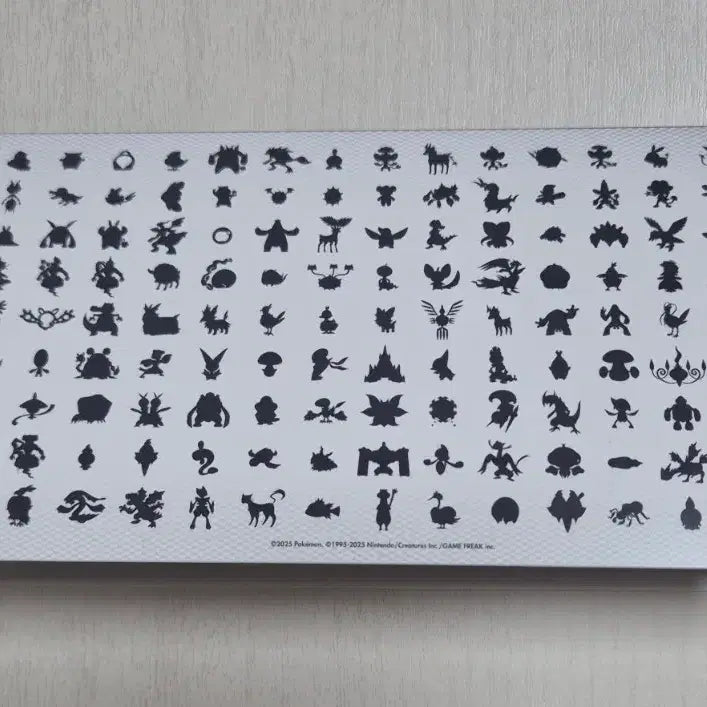 ©2025 Pokémon. ©1995-2025 Nintendo/Creatures Inc./GAME FREAK inc.